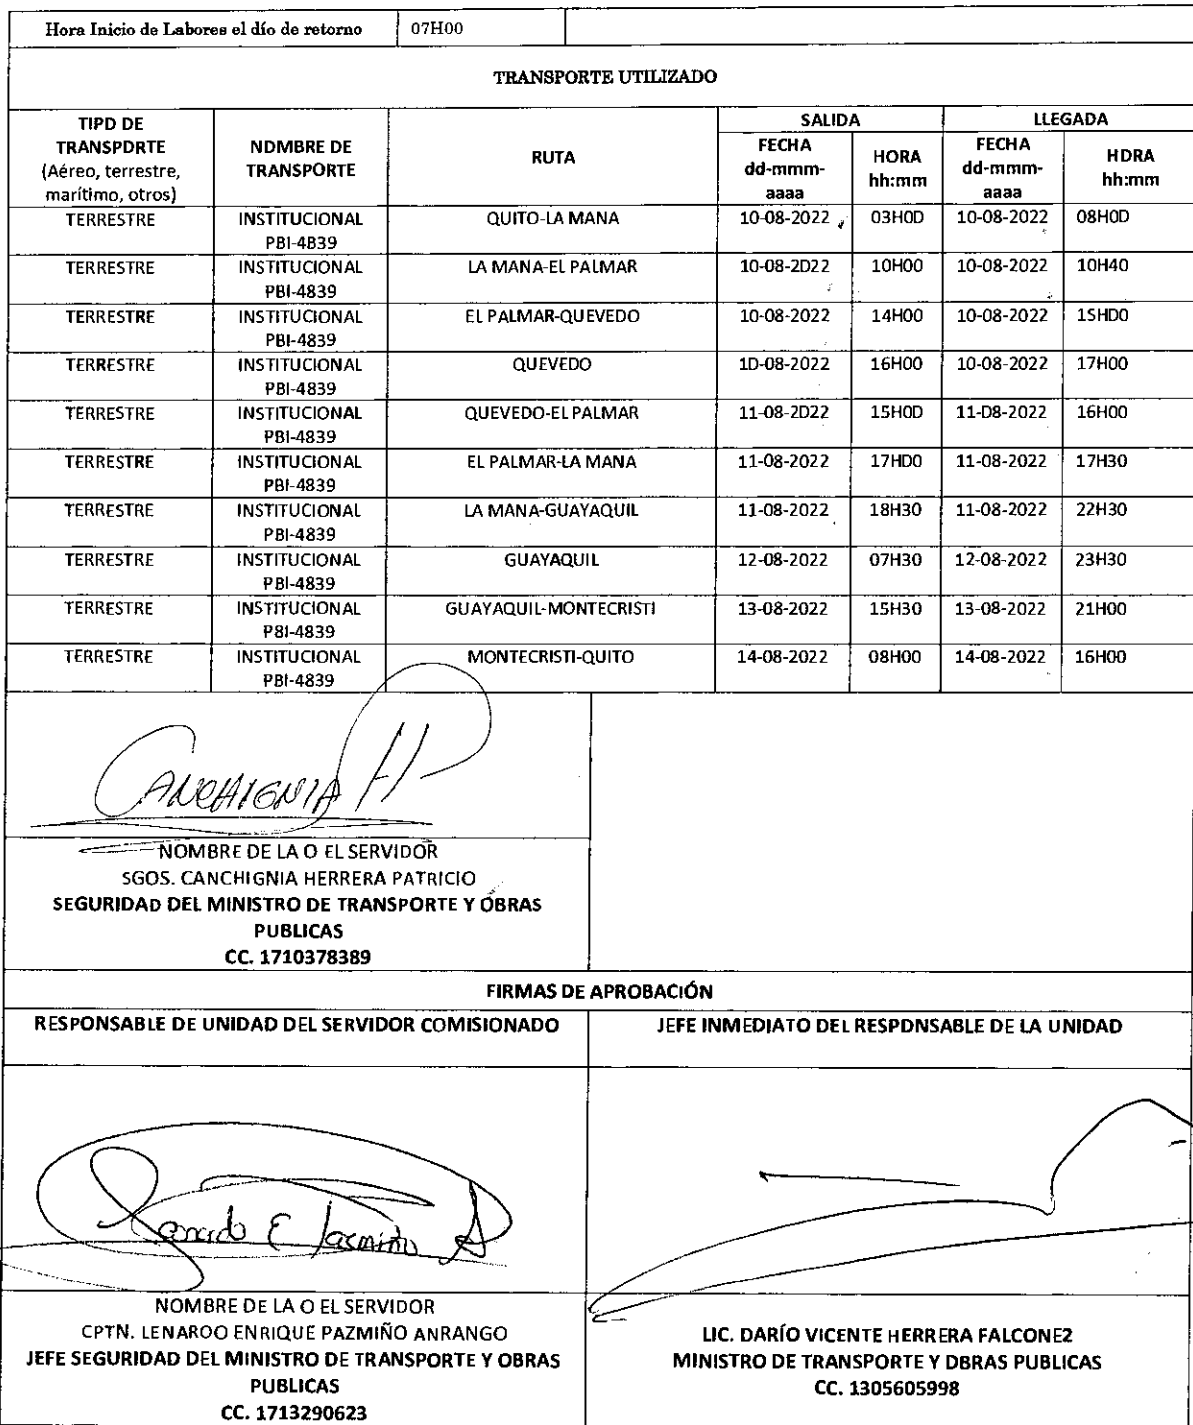 Hora Inicio de Labores el día de retorno 07H00
TRANSPORTE UTILIZADO
SALIDA LLEGADA
TIPD DE TRANSPDRTE (Aéreo, terrestre, marítimo, otros) NDMBRE DE TRANSPORTE RUTA FECHA dd-mmm-aaaa HORA hh:mm FECHA dd-mmm-aaaa HDRA hh:mm
TERRESTRE INSTITUCIONAL QUITO-LA MANA 10-08-2022 03H0D 10-08-2022 08H0D
PBI-4B39
TERRESTRE INSTITUCIONAL LA MANA-EL PALMAR 10-08-2D22 10H00 10-08-2022 10H40
PBI-4839
TERRESTRE INSTITUCIONAL EL PALMAR-QUEVEDO 10-08-2022 14H00 10-08-2022 1SHD0
PBI-4839
TERRESTRE INSTITUCIONAL QUEVEDO 1D-08-2022 16H00 10-08-2022 17H00
PBI-4839
TERRESTRE INSTITUCIONAL QUEVEDO-EL PALMAR 11-08-2D22 15H0D 11-D8-2022 16H00
PBI-4839
TERRESTRE INSTITUCIONAL EL PALMAR-LA MANA 11-08-2022 17HD0 11-08-2022 17H30
PBI-4839
TERRESTRE INSTITUCIONAL LA MANA-GUAYAQUIL 11-08-2022 18H30 11-08-2022 22H30
PBI-4839
TERRESTRE INSTITUCIONAL GUAYAQUIL 12-08-2022 07H30 12-08-2022 23H30
PBI-4839
TERRESTRE INSTITUCIONAL GUAYAQUIL-MONTECRISTI 13-08-2022 15H30 13-08-2022 21H00
P8I-4839
TERRESTRE INSTITUCIONAL MONTECRISTI-QUITO 14-08-2022 08H00 14-08-2022 16H00
PBI-4839
CANCHIGNIA HP
NOMBRE DE LA O EL SERVIDOR
SGOS. CANCHIGNIA HERRERA PATRICIO
SEGURIDAD DEL MINISTRO DE TRANSPORTE Y OBRAS
PUBLICAS
CC. 1710378389
FIRMAS DE APROBACIÓN
RESPONSABLE DE UNIDAD DEL SERVIDOR COMISIONADO
JEFE INMEDIATO DEL RESPDNSABLE DE LA UNIDAD
NOMBRE DE LA O EL SERVIDOR
CPTN. LENAROO ENRIQUE PAZMIÑO ANRANGO
JEFE SEGURIDAD DEL MINISTRO DE TRANSPORTE Y OBRAS
PUBLICAS
CC. 1713290623
LIC. DARÍO VICENTE HERRERA FALCONE2
MINISTRO DE TRANSPORTE Y DBRAS PUBLICAS
CC. 1305605998